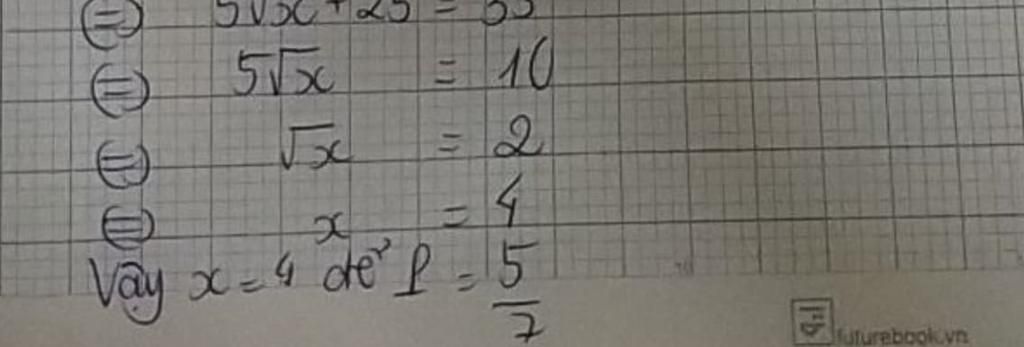 ⇔ 5√x + 25 = 35
⇔ 5√x = 10
⇔ √x = 2
⇔ x = 4
Vậy x = 4 để P = 5/7
futurebook.vn